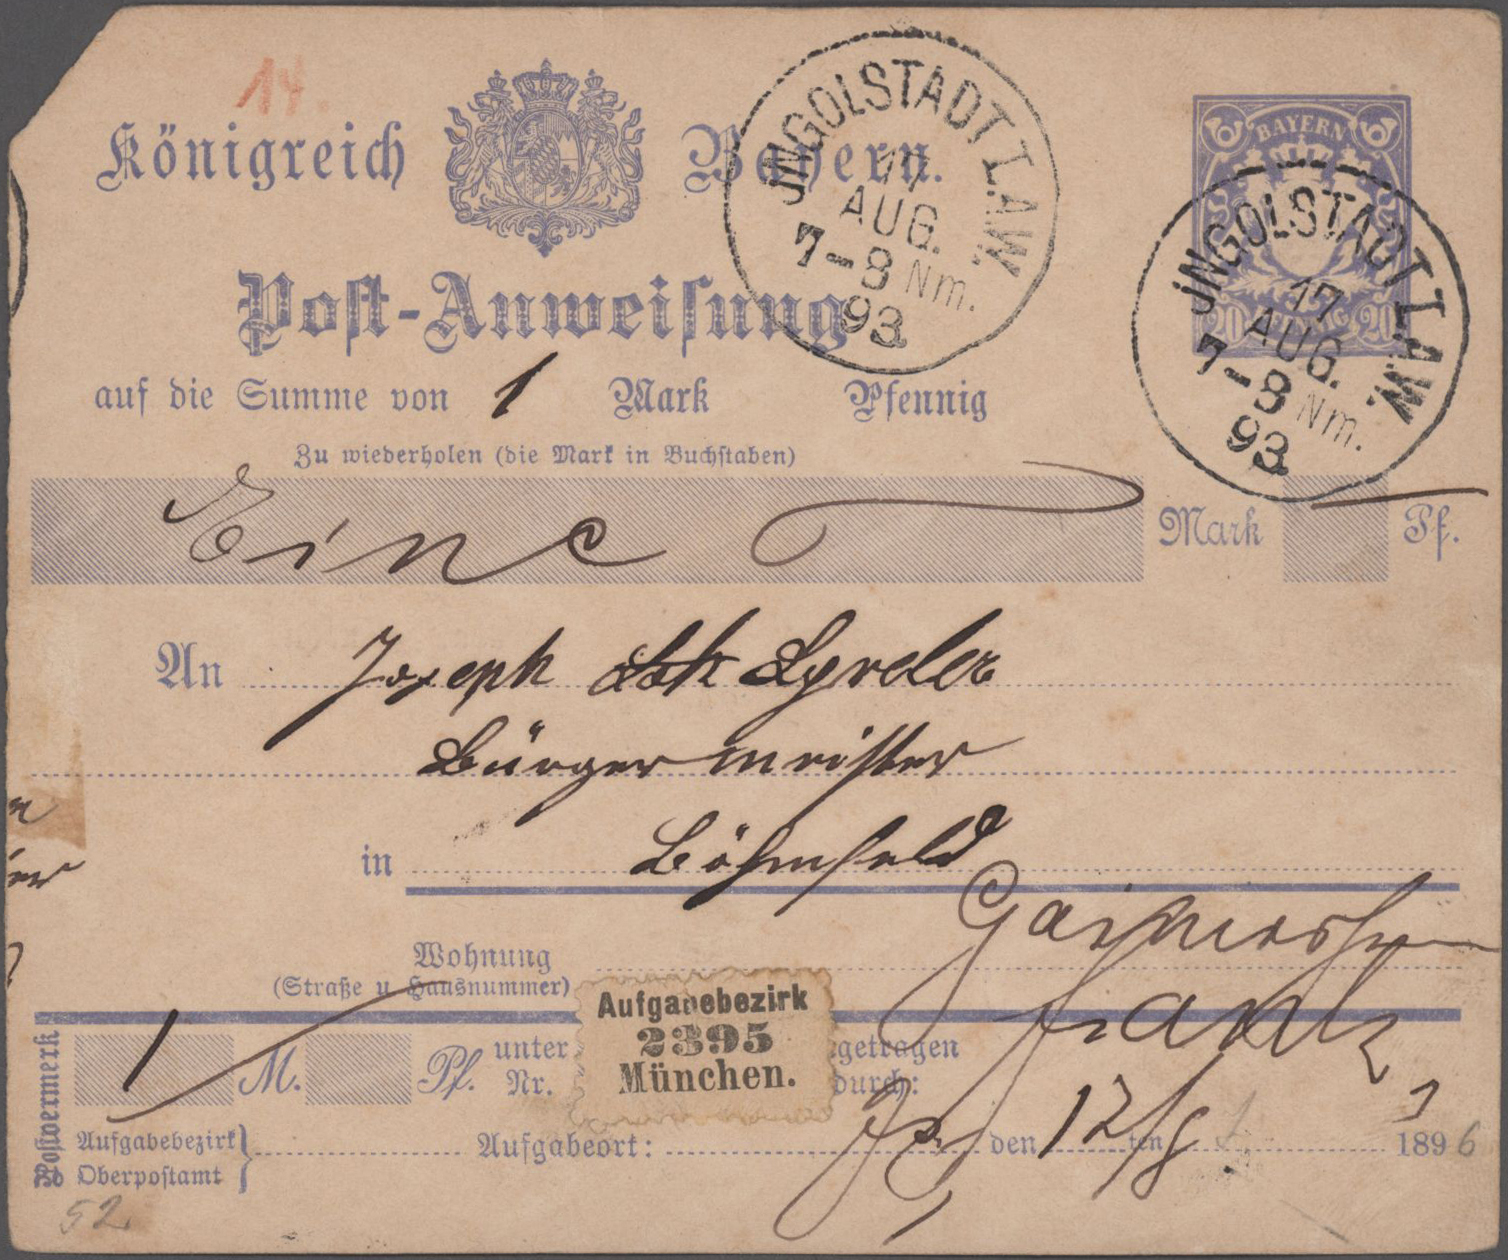 14.
Königreich Bayern.
JNGOLSTADT I.A.W.
17
AUG.
7-8 Nm.
93
BAYERN
20 PFENNIG 20
JNGOLSTADT I.A.W.
17
AUG.
7-8 Nm.
93
Post-Anweisung
auf die Summe von 1 Mark Pfennig
Zu wiederholen (die Mark in Buchstaben)
Eine Mark Pf.
An Joseph
Bürgermeister
in Böhmfeld
Gaimersheim
Wohnung
(Straße u. Hausnummer)
Postvermerk
1 M. Pf. unter Nr.
Aufgabebezirk
2395
München.
getragen
durch:
Aufgabebezirk
Oberpostamt
Aufgabeort: den 17ten 1896
52